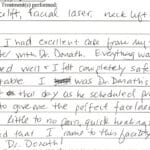 Treatment(s) performed:
lift, facial laser, neck lift
I had excellent care from my
with Dr. Donath. Everything wa
ed well & I felt completely safe
table. I was Dr. Donath's
that day as he scheduled an
to give me the perfect facelif
little to no pain, quick healing
ad that I came to this facility
Dr. Donath!